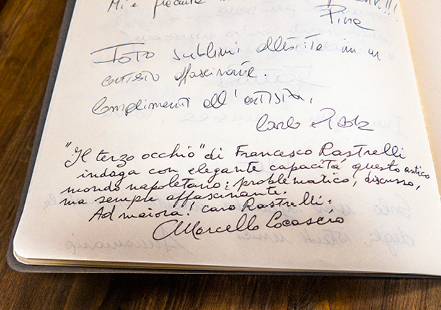 Mi è piaciuta
Pina
Foto sublimi allestite in un
contesto affascinante.
Complimenti all'artista.
Carlo
"Il terzo occhio" di Francesco Rastrelli
indaga con elegante capacità questo antico
mondo napoletano: problematico, discusso,
ma sempre affascinante.
Ad maiora! caro Rastrelli.
Marcello Cocascio